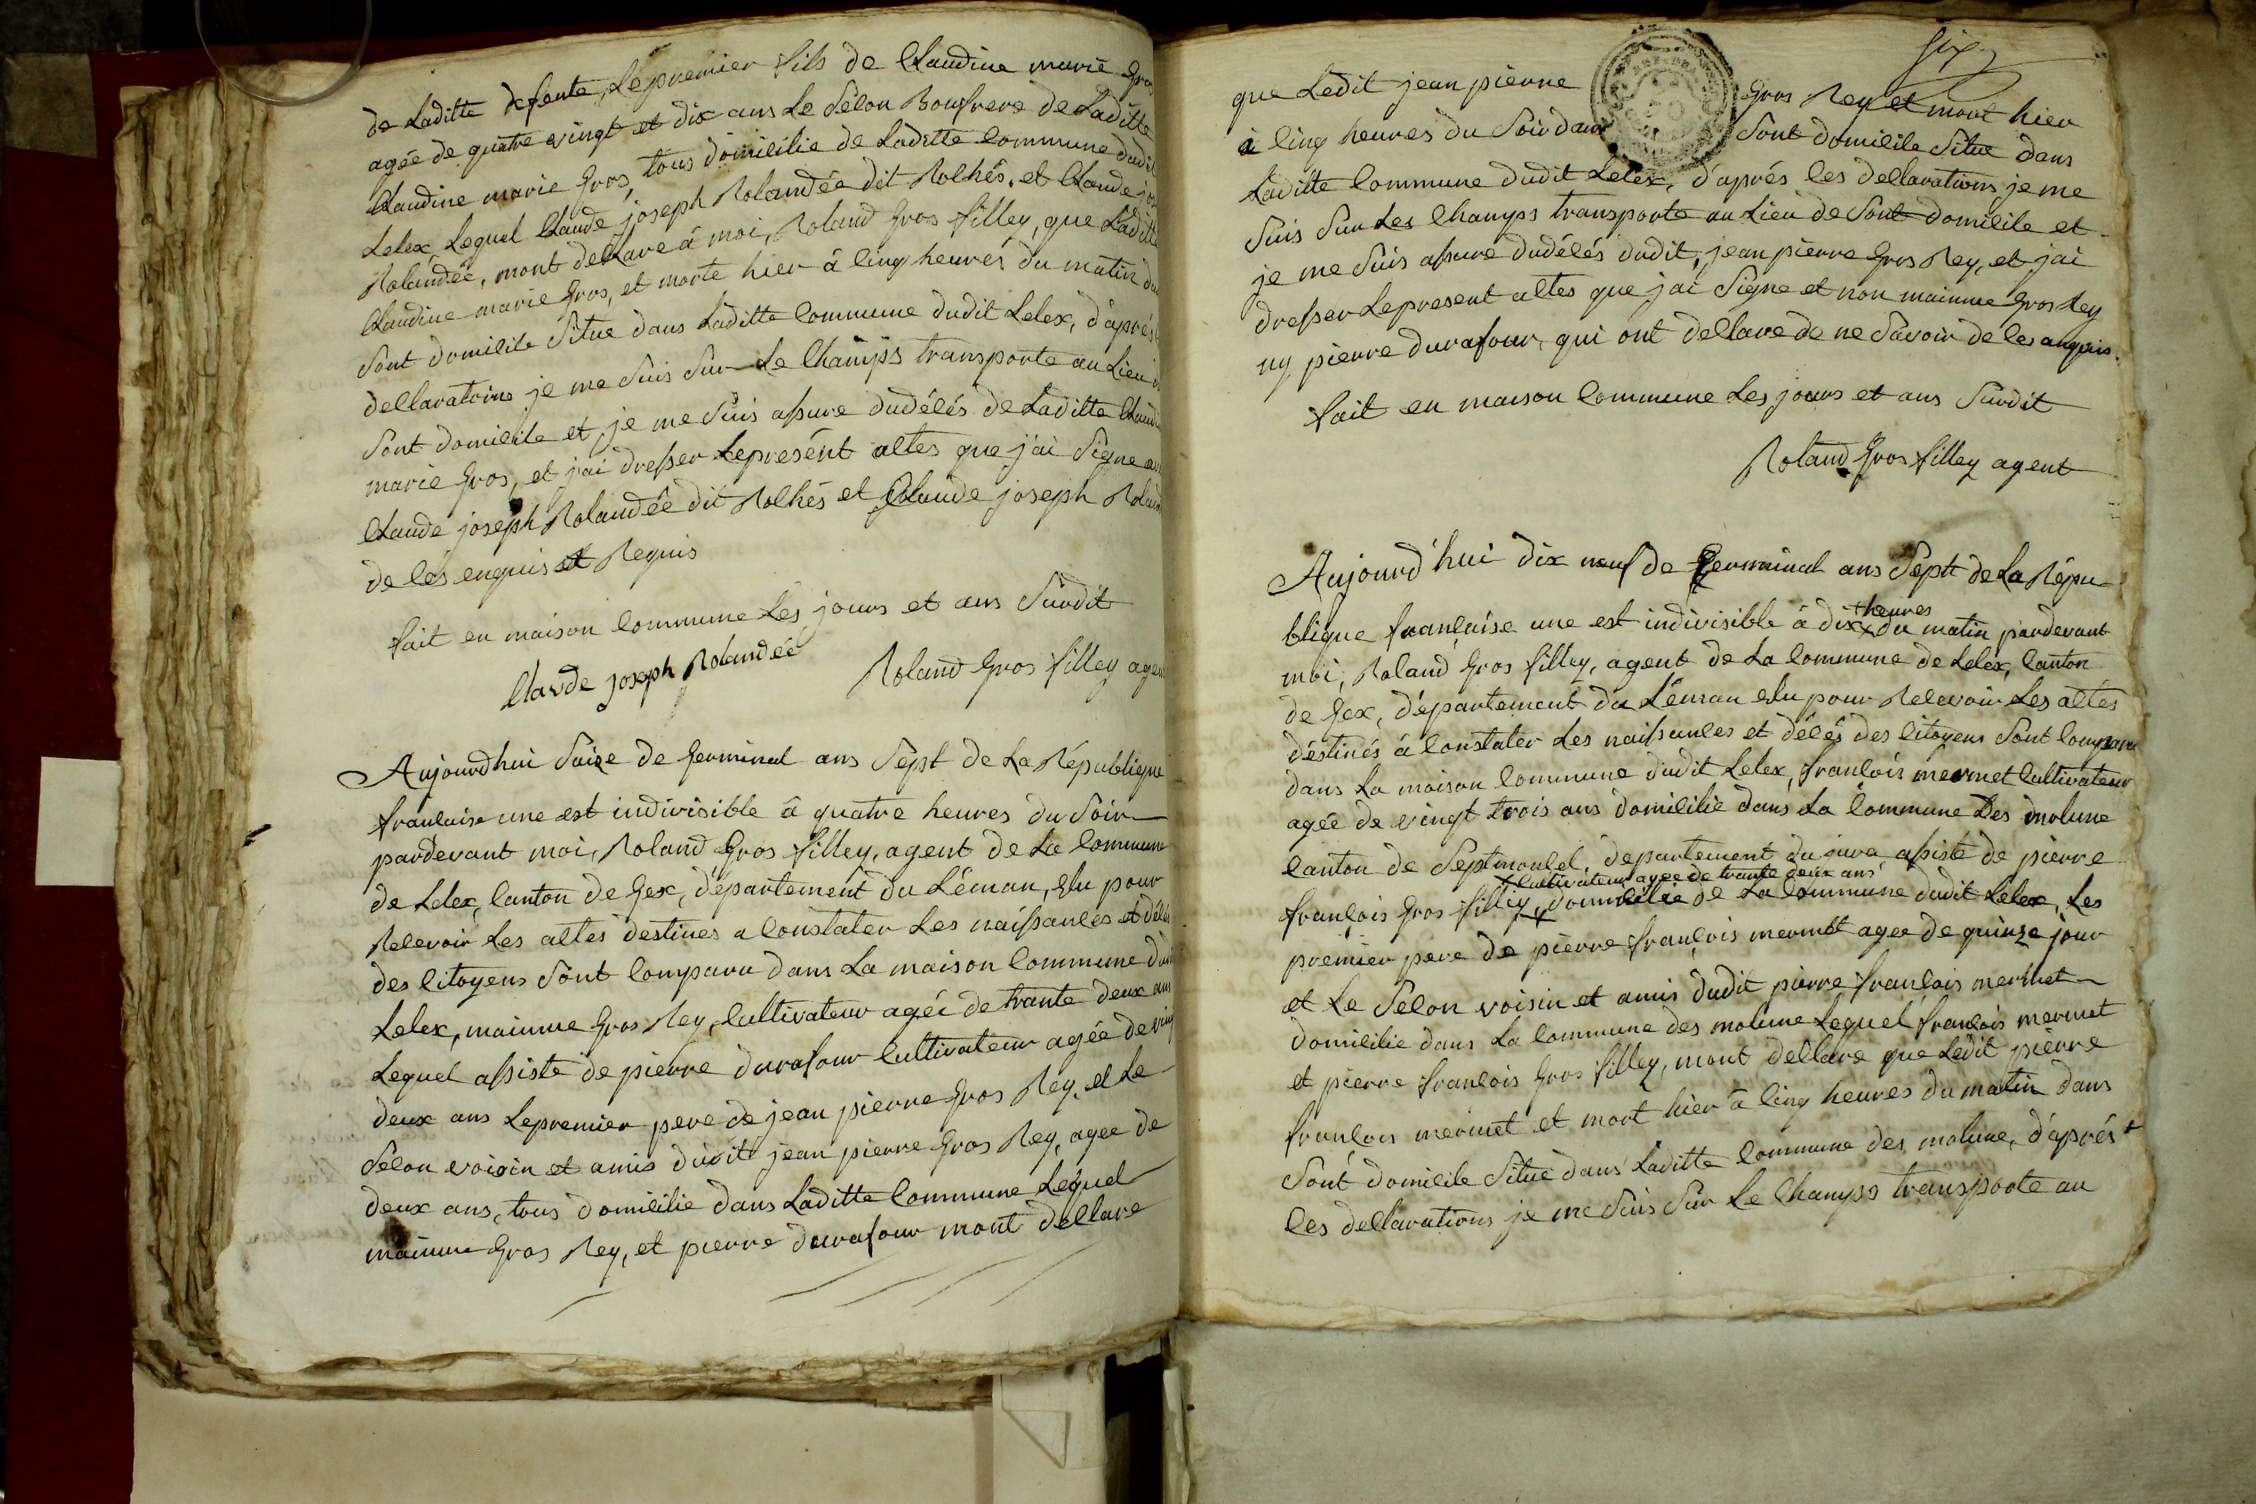 de Laditte defente, Le premier fils de Claudine marie gros
agée de quatre vingt et dix ans Le Second Boufrere de Laditte
Claudine marie Gros, tous domicilie de Laditte Commune dudit
Lelex, Lequel Claude joseph Rolandée dit Rolhés, et Claude jos
Rolandée, mont declare á moi, Roland Gros filley, que Laditte
Claudine marie Gros, et morte hier á cinq heurés du matin da
Sont domicile Situe dans Laditte Commune dudit Lelex, d'aprés
declaratoins je me Suis Sur Le Champs transporte au Lieu
Sont domicile et je me Suis assure dudécés de Laditte Claudi
marie Gros, et j'ai dresser Leprésént actes que j'ai Signe
Claude joseph Rolandée dit Rolhés et Claude joseph Roland
de cés enquis et Requis
fait en maison Commune Les jours et ans Surdit
Clavde joseph Rolandée
Roland Gros filley agen
Aujourdhui Saize de Germinal ans Sept de La République
francaise une est indivisible á quatre heures du Soir
pardevant moi, Roland Gros filley, agent de La Commune
de Lelex, Canton de Gex, département du Léman, Elu pour
Recevoir Les actes destines a Constater Les naissances et décés
des Citoyens Sont Comparu dans La maison Commune du
Lelex, mainme Gros Rey, Cultivateur agée de trante deux ans
Lequel assiste de pierre durafour Cultivateur agée de ving
deux ans Lepremier pere de jean pierre Gros Rey, et Le
Secon voisin et amis dudit jean pierre Gros Rey, agee de
deux ans, tous domicilie dans Laditte Commune Lequel
mainme Gros Rey, et pierre durafour mont declare
six
que Ledit jean pierre Gros Rey et mort hier
á Cinq heures du Soir dans Sont domicile Situe dans
Laditte Commune dudit Lelex, d'aprés Ces declarations je me
Suis Sur Les Champs transporte au Lieu de Sont domicile et
je me Suis assure dudécés dudit, jean pierre Gros Rey, et jai
dresser Lepresent actes que jai Signe et non mainme Gros Rey
ny pierre durafour, qui ont declare de ne Savoir de Ces anquis.
fait en maison Commune Les jours et ans Surdit
Roland Gros filley agent
Aujourd'hui dix neuf de Germinal ans Sept de La Répu
blique française une est indivisible á dix heures du matin pardevant
moi, Roland Gros filley, agent de La Commune de Lelex, Canton
de Gex, département du Léman elu pour Recevoir Les actes
déstinés á Constater Les naissances et décés des Citoyens Sont Comparu
dans La maison Commune dudit Lelex, francois mermet Cultivateur
agée de vingt trois ans domicilie dans La Commune Des molune
Canton de Septmoncel, departement du jura assiste de pierre
x Cultivateur agee de trante deux ans
françois Gros filley, x domicilie de La Commune dudit Lelex, Les
premier pere de pierre françois mermet agee de quinze jour
et Le Secon voisin et amis dudit pierre francois mermet
domicilie dans La Commune des molune Lequel francois mermet
et pierre francois Gros filley, mont declare que Ledit pierre
francois mermet et mort hier á Cinq heures du matin dans
Sont domicile Situe dans Laditte Commune des molune, d'aprés
Ces declarations je me Suis Sur Le Champs transporte au